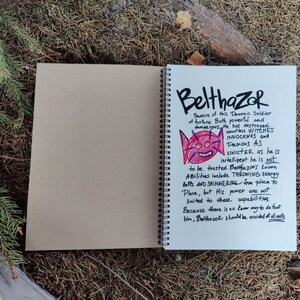 Belthazor
Beware of this Demonic Soldier
of fortune. Both powerful and
dangerous, he has destroyed
countless WITCHES
INNOCENTS and
DEMONS AS
SINISTER as he is
intelligent he is not
to be trusted. Belthazor's known
Abilities include THROWING Energy
Balls AND SHIMMERING from place to
Place, but His power are not
limited to these capabilities
Because there is no known way to defeat
him, Belthazor should be avoided at all costs